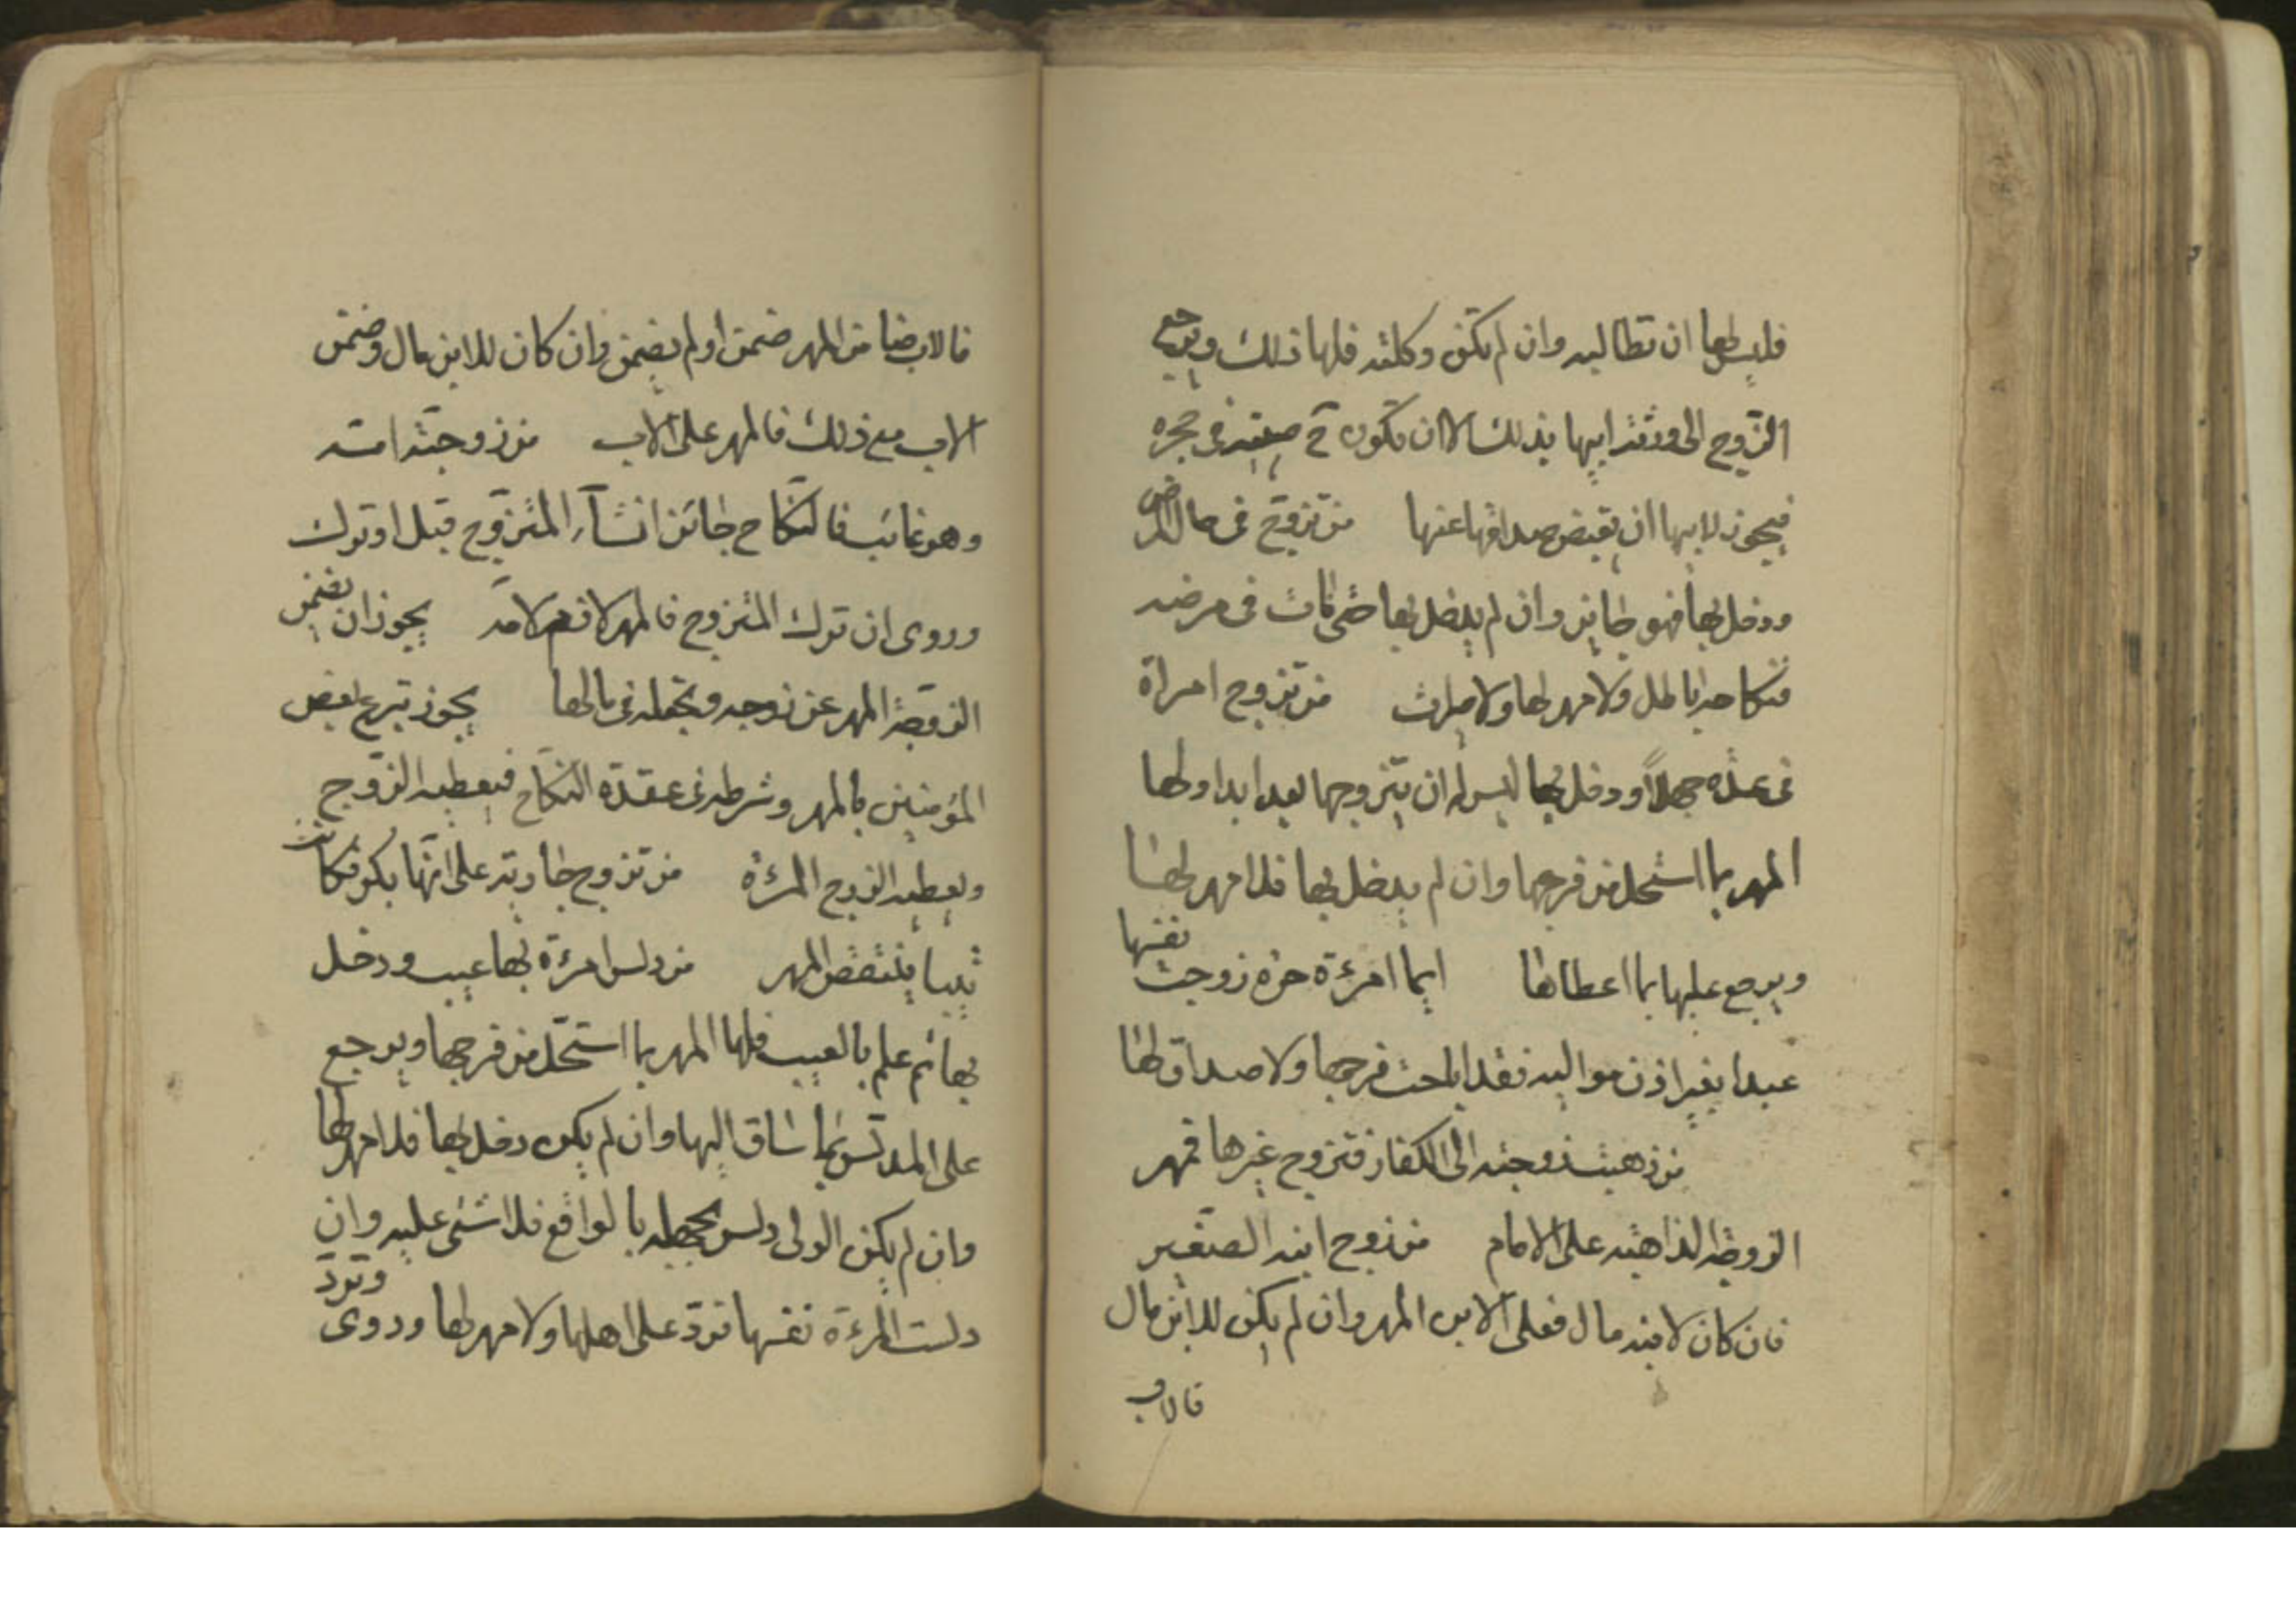 فليس لها ان تطالبه وان لم تكن وكلته فلها ذلك ويرجع
الزوج الى ورثة ابيها بذلك الا ان تكون ح صبية فى حجره
فيجوز لابيها ان يقبض صداقها عنها من تزوج فى حال المرض
ودخل بها فهو جايز وان لم يدخل بها حتى مات فى مرضه
فنكاحه باطل ولا مهر لها ولا ميراث من تزوج امراة
فى عدة جهلاً ودخل بها ليس له ان يتزوجها بعد ابدا ولها
المهر بما استحل من فرجها وان لم يدخل بها فلا مهر لها
ويرجع عليها بما اعطاها ايما امرءة حرة زوجت نفسها
عبدا بغير اذن مواليه فقد اباحت فرجها ولا صداق لها
من ذهبت زوجته الى الكفار فتزوج غيرها فمهر
الزوجة الذاهبة على الامام من زوج ابنه الصغير
فان كان لابنه مال فعلى الابن المهر وان لم يكن للابن مال
فالاب
فالاب ضامن المهر ضمن او لم يضمن وان كان للابن مال وضمن
الاب مع ذلك فالمهر على الاب من زوجته امه
وهو غائب فالنكاح جائز ان شآء المتزوج قبل او ترك
وروى ان ترك المتزوج فالمهر لازم لامه يجوز ان تضمن
الزوجة المهر عن زوجه وتجعله فى مالها يجوز تبرع بعض
المؤمنين بالمهر وشرطه فى عقدة النكاح فيعطيه الزوج
ويعطيه الزوج المرءة من تزوج جارية على انها بكر فكانت
ثيبا ينتقص المهر من دلس امرءة بها عيب ودخل
بها ثم علم بالعيب فلها المهر بما استحل من فرجها ويرجع
على المدلس بما ساق اليها وان لم يكن دخل بها فلا مهر لها
وان لم يكن الولى دلس بجهله بالواقع فلا شئ عليه وان
دلست المرءة نفسها تردّ على اهلها ولا مهر لها وروى وتردّ